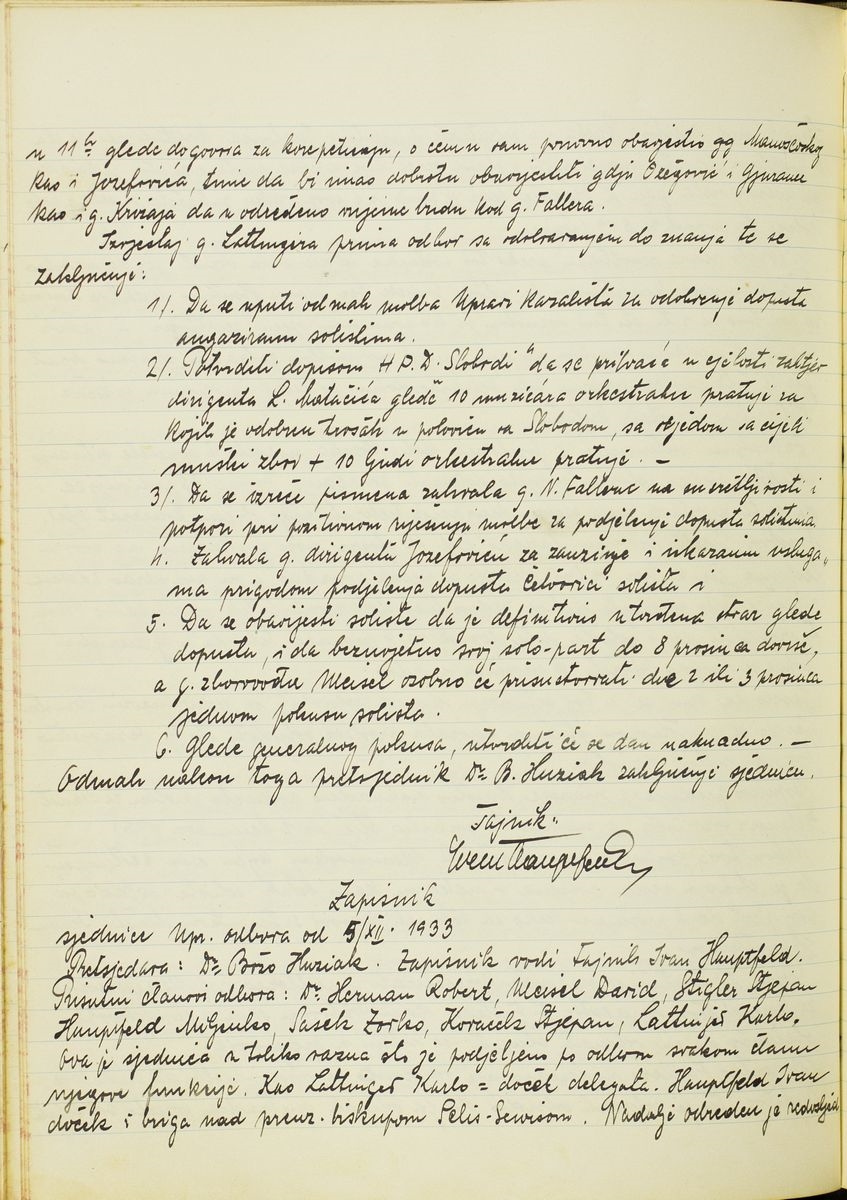 u 11 h glede dogovora za korepeticiju, o čemu sam ponovno obavjestio gg
kao i Jozefovića, time da bi imao dobrotu obavijestiti gdju i
kao i g. Križaja da u određeno vrijeme budu kod g. Fallera.
Izvještaj g. Lattingera prima odbor sa odobravanjem do znanja te se
zaključuje:
1/. Da se uputi odmah molba Upravi kazališta za odobrenje dopusta
angažiranim solistima.
2/. Potvrditi dopisom H.P.D. Slobodi" da se prihvaća u cjelosti zahtjev
dirigenta L. Matačića glede 10 muzičara orkestralne pratnje za
kojih je odobren trošak u polovicu sa Slobodom, sa sijedom sa cijeli
muški zbor + 10 ljudi orkestralne pratnje. —
3/. Da se izreče pismena zahvala g. N. Falleru na susretljivosti i
potpori pri pozitivnom riješenju molbe za podjelenje dopusta solistima.
4. Zahvala g. dirigentu Jozefoviću za zauzimje i iskazanim usluga„
ma prigodom podjelenja dopusta četvorici solista i
5. Da se obavijesti soliste da je definitivno utvrđena stvar glede
dopusta, i da bezuvjetno svoj solo-part do 8 prosinca dovrše,
a g. zborovođa Meisel osobno će prisustvovati dne 2 ili 3 prosinca
jednom pokusu solista.
6. Glede generalnog pokusa, utvrditi će se dan naknadno. —
Odmah nakon toga pretsjednik Dr. B. Huziak zaključuje sjednicu.
Tajnik:
Ivan Hauptfeld
Zapisnik
sjednice Upr. odbora od 5/XII. 1933
Pretsjedava: Dr. Božo Huziak. Zapisnik vodi tajnik Ivan Hauptfeld.
Prisutni članovi odbora: Dr. Herman Robert, Meisel David, Štigler Stjepan
Hauptfeld Miljenko, Šašek Zorko, Horaček Stjepan, Lattinger Karlo.
Ova je sjednica u toliko važna što je podjeljeno po odboru svakom članu
njegove funkcije. Kao Lattinger Karlo = doček delegata. Hauptfeld Ivan
doček i briga nad preuz. biskupom. Nadalje određen je redosljed